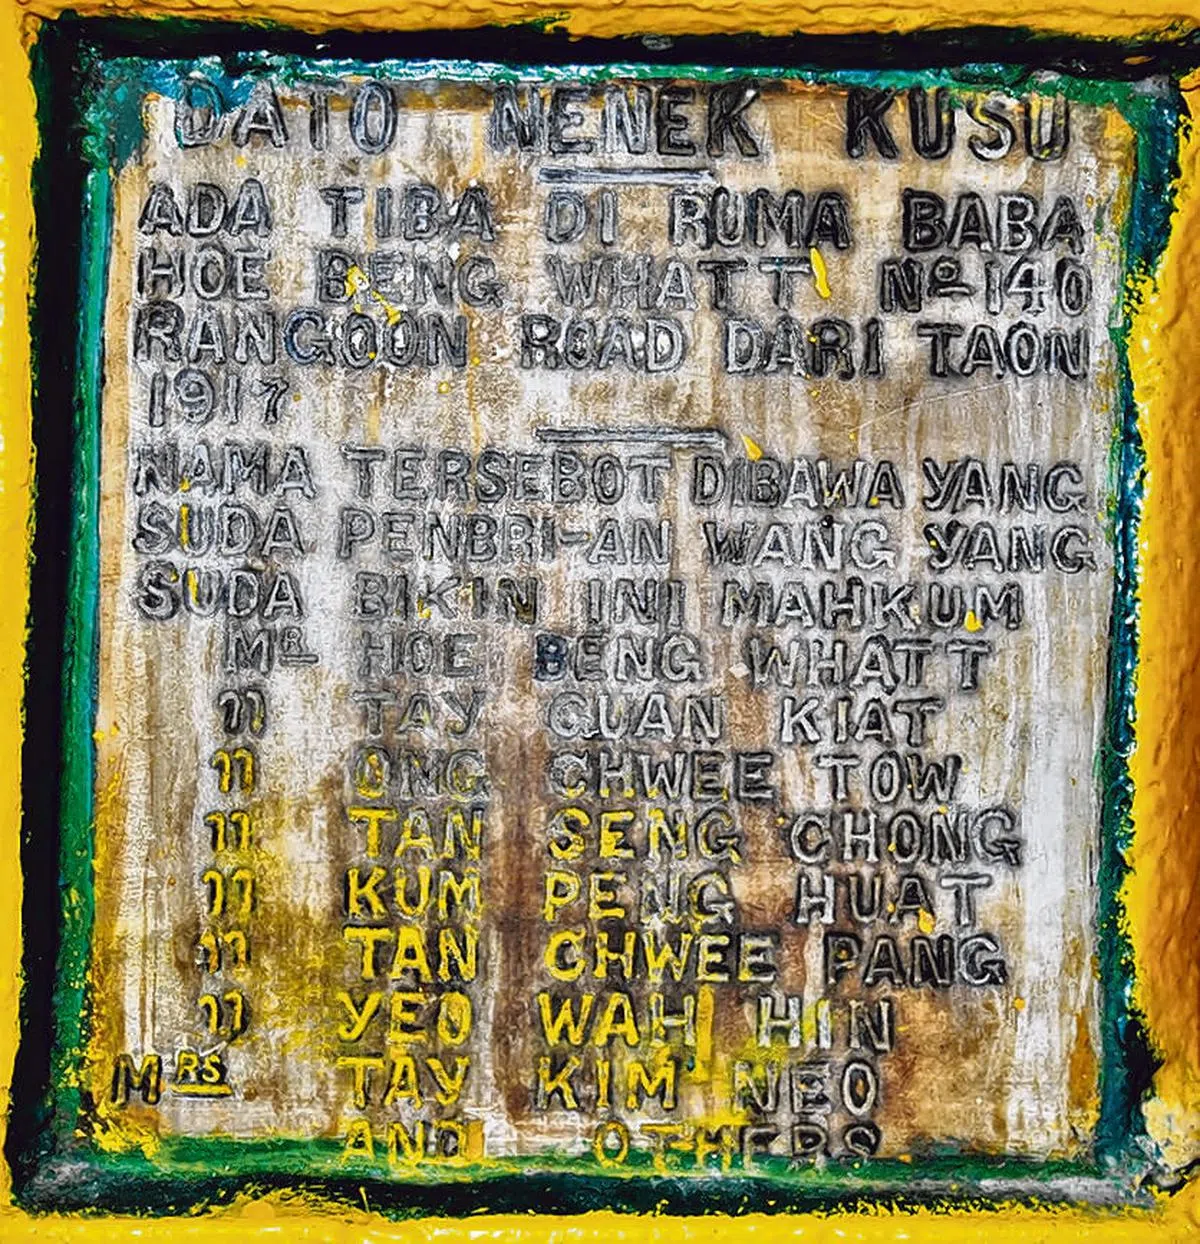 DATO NENEK KUSU
ADA TIBA DI RUMA BABA
HOE BENG WHATT Nº 140
RANGOON ROAD DARI TAON
1917
NAMA TERSEBOT DIBAWA YANG
SUDA PENBRI-AN WANG YANG
SUDA BIKIN INI MAHKUM
MR HOE BENG WHATT
" TAY GUAN KIAT
" ONG CHWEE TOW
" TAN SENG CHONG
" KUM PENG HUAT
" TAN CHWEE PANG
" YEO WAH HIN
MRS TAY KIM NEO
AND OTHERS